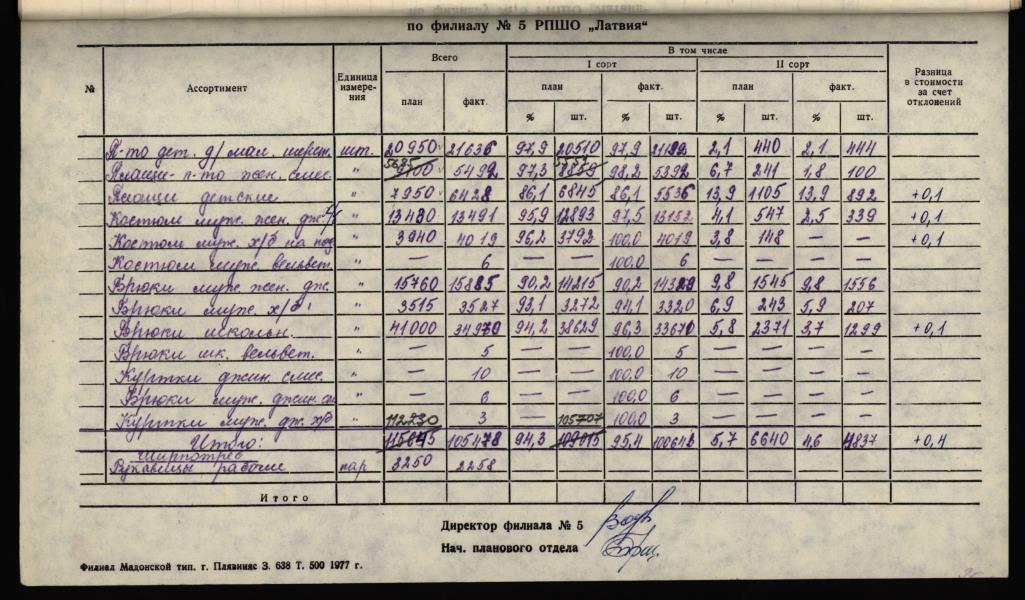 по филиалу № 5 РПШО „Латвия“
№ Ассортимент Единица измере-ния Всего В том числе Разница в стоимости за счет отклонений
I сорт II сорт
план факт. план факт. план факт.
% шт. % шт. % шт. % шт.
П-то дет. д/мал. шерст. шт. 20950 21636 97,9 20510 97,9 2,1 440 2,1 444
Плащи-п-то жен. смес. " 5499 97,3 98,2 5392 6,7 241 1,8 100
Плащи детские " 7950 6428 86,1 6845 86,1 5536 13,9 1105 13,9 892 +0,1
Костюм муж. жен. дж. " 13480 13491 95,9 12893 97,5 13152 4,1 547 2,5 339 +0,1
Костюм муж. х/б на под " 3940 4019 96,2 3792 100,0 4019 3,8 148 — — +0,1
Костюм муж. вельвет. " — 6 — — 100,0 6 — — — —
Брюки муж. жен. дж. " 15760 15885 90,2 14215 90,2 14329 9,8 1545 9,8 1556
Брюки муж. х/б " 3515 3527 93,1 3272 94,1 3320 6,9 243 5,9 207
Брюки школьн. " 41000 34970 94,2 38629 96,3 33671 5,8 2371 3,7 1299 +0,1
Брюки шк. вельвет. " — 5 — — 100,0 5 — — — —
Куртки джин. смес. " — 10 — — 100,0 10 — — — —
Брюки муж. джин. см " — 6 — — 100,0 6 — — — —
Куртки муж. дж. х/б " — 3 — — 100,0 3 — — — —
112230 105707
Итого: 115645 105478 94,3 109015 95,4 100641 5,7 6640 4,6 4837 +0,4
ширпотреб
Рукавицы рабочие пар 3250 2258
Итого
Директор филиала № 5
Нач. планового отдела
Филиал Мадонской тип. г. Плявиняс З. 638 Т. 500 1977 г.